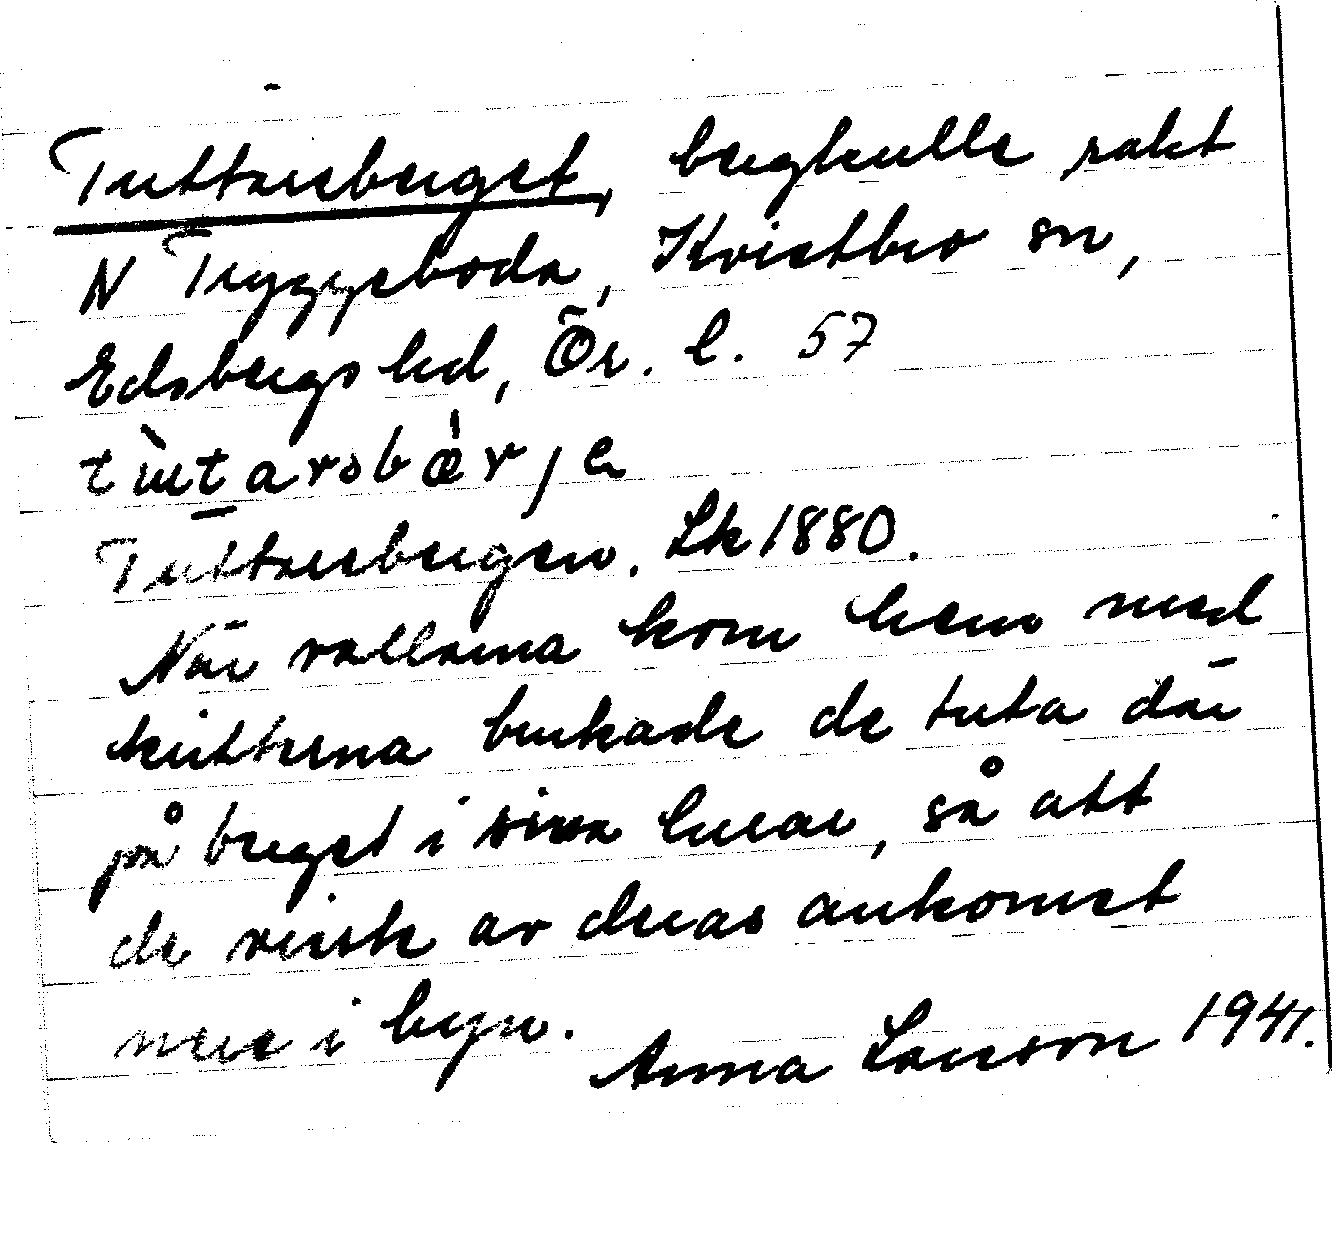 Tuttarsberget, bergkulle rakt
N Tryggeboda, Kvistbro sn,
Edsbergs hd, Ör. l. 57
tùtarsbær̀je
Tuttarsbergen. Lk 1880.
När vallarna kom hem med
kritterna brukade de tuta där
på berget i sina lurar, så att
de visste av deras ankomst
ner i byn.
Anna Larsson 1941.